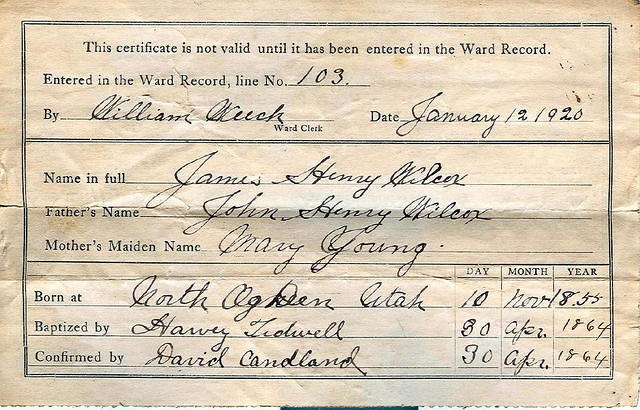 This certificate is not valid until it has been entered in the Ward Record.
Entered in the Ward Record, line No. 103.
By William Weech Date January 12 1920
Ward Clerk
Name in full James Henry Wilcox
Father's Name John Henry Wilcox
Mother's Maiden Name Mary Young.
DAY MONTH YEAR
Born at North Ogden Utah 10 Nov 1855
Baptized by Harvey Tidwell 30 Apr. 1864
Confirmed by David Candland 30 Apr. 1864